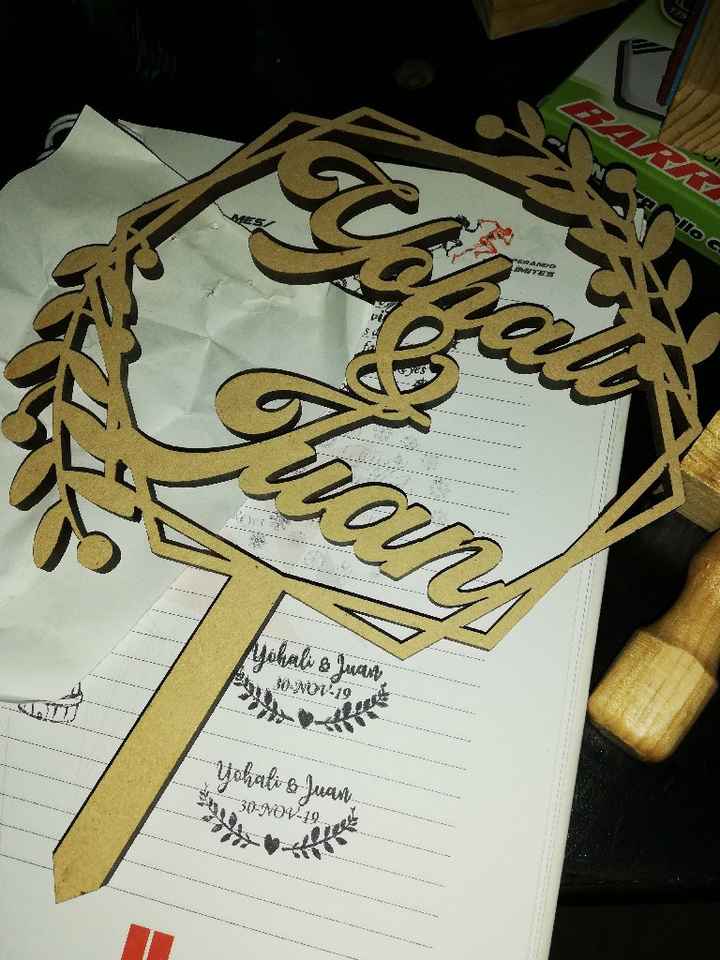 BARR
MES/
PERANDO
IMITES
Yohali
&
Juan
Yohali & Juan
30-NOV-19
Yohali & Juan
30-NOV-19